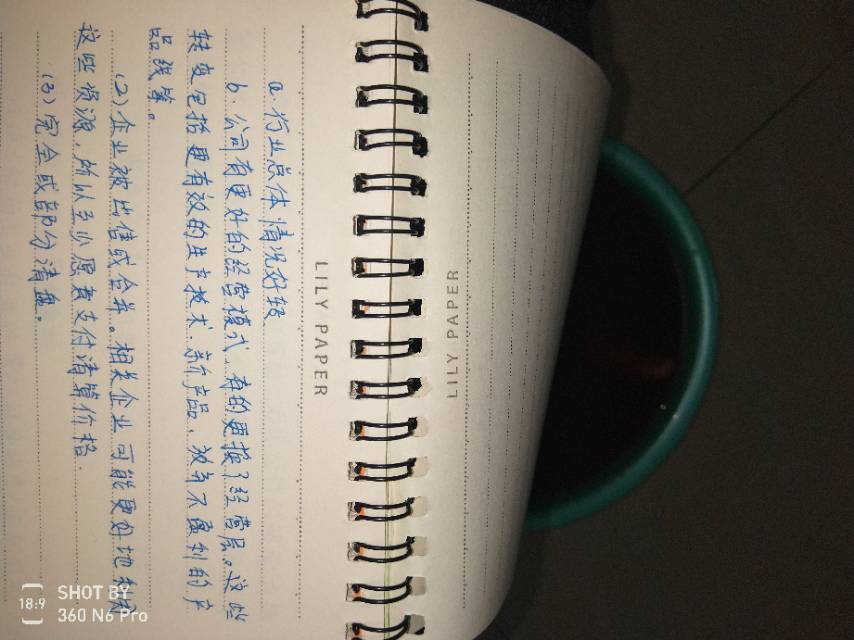 LILY PAPER
LILY PAPER
a. 行业总体情况好转
b. 公司有更好的经营模式，有的更换了经营层。这些
转变包括更有效的生产技术、新产品、放弃不盈利的产
品线等。
(2) 企业被出售或合并。相关企业可能更好地利用
这些资源，所以至少愿意支付清算价格.
(3) 完全或部分清盘。
18:9
SHOT BY
360 N6 Pro